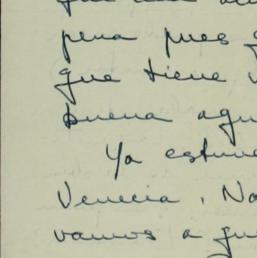 pena pues
que tiene
buena agu
Ya estuv
Venecia, No
vamos a